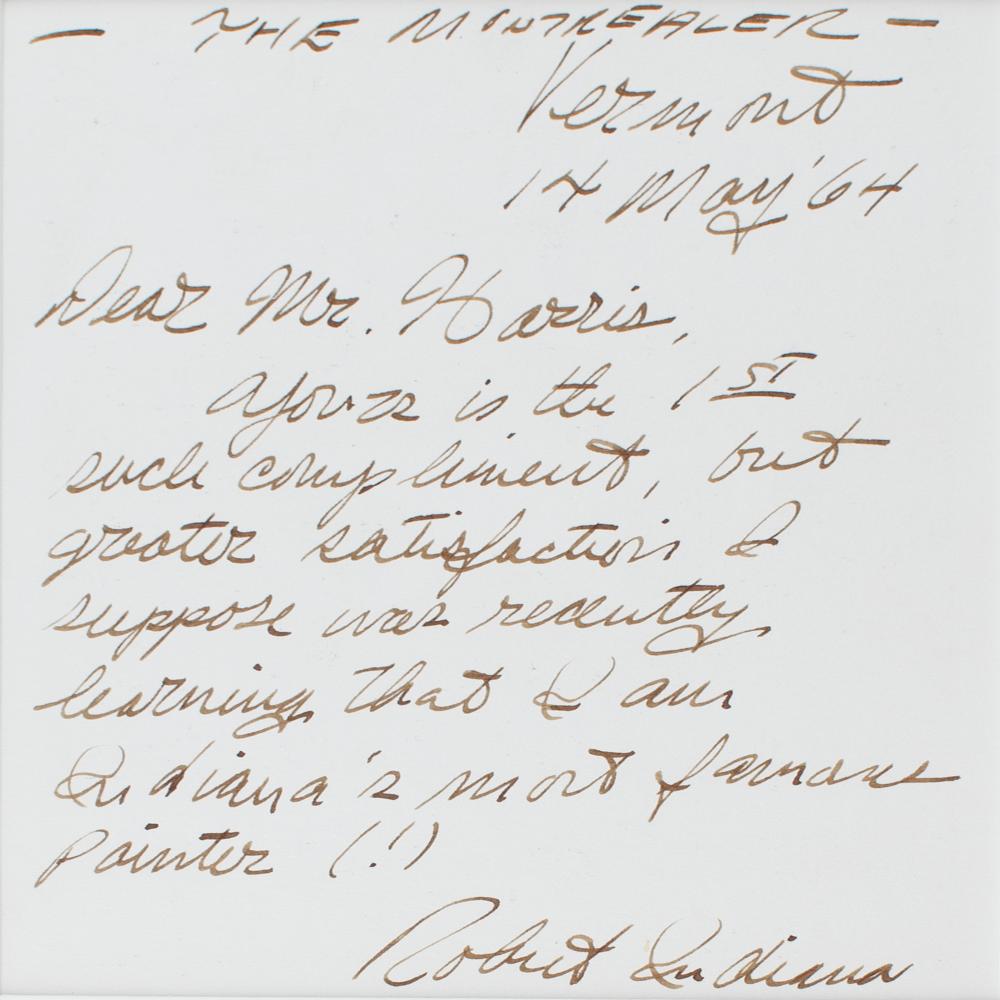 — THE MONTREALER —
Vermont
14 May '64
Dear Mr. Harris,
Yours is the 1ST
such compliment, but
greater satisfaction I
suppose was recently
learning that I am
Indiana's most famous
painter (!)
Robert Indiana